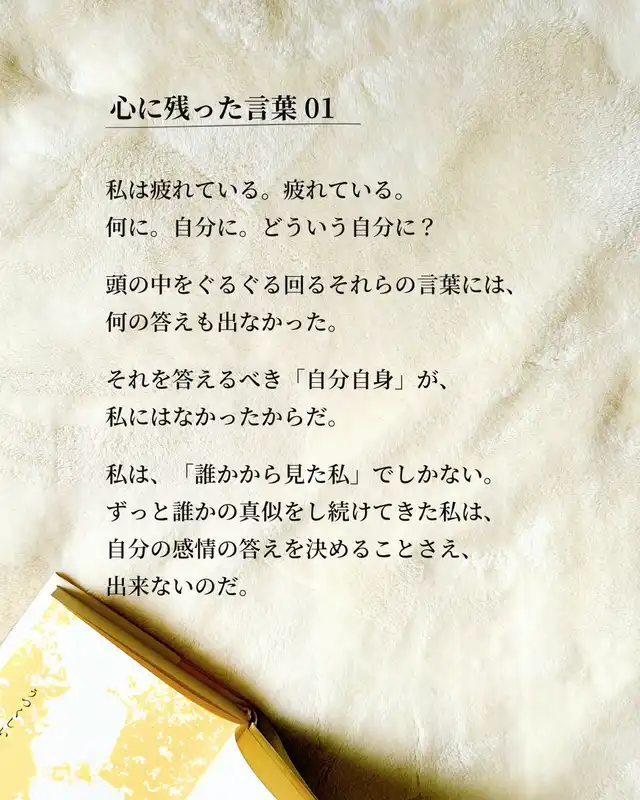 心に残った言葉 01
私は疲れている。疲れている。
何に。自分に。どういう自分に？
頭の中をぐるぐる回るそれらの言葉には、
何の答えも出なかった。
それを答えるべき「自分自身」が、
私にはなかったからだ。
私は、「誰かから見た私」でしかない。
ずっと誰かの真似をし続けてきた私は、
自分の感情の答えを決めることさえ、
出来ないのだ。